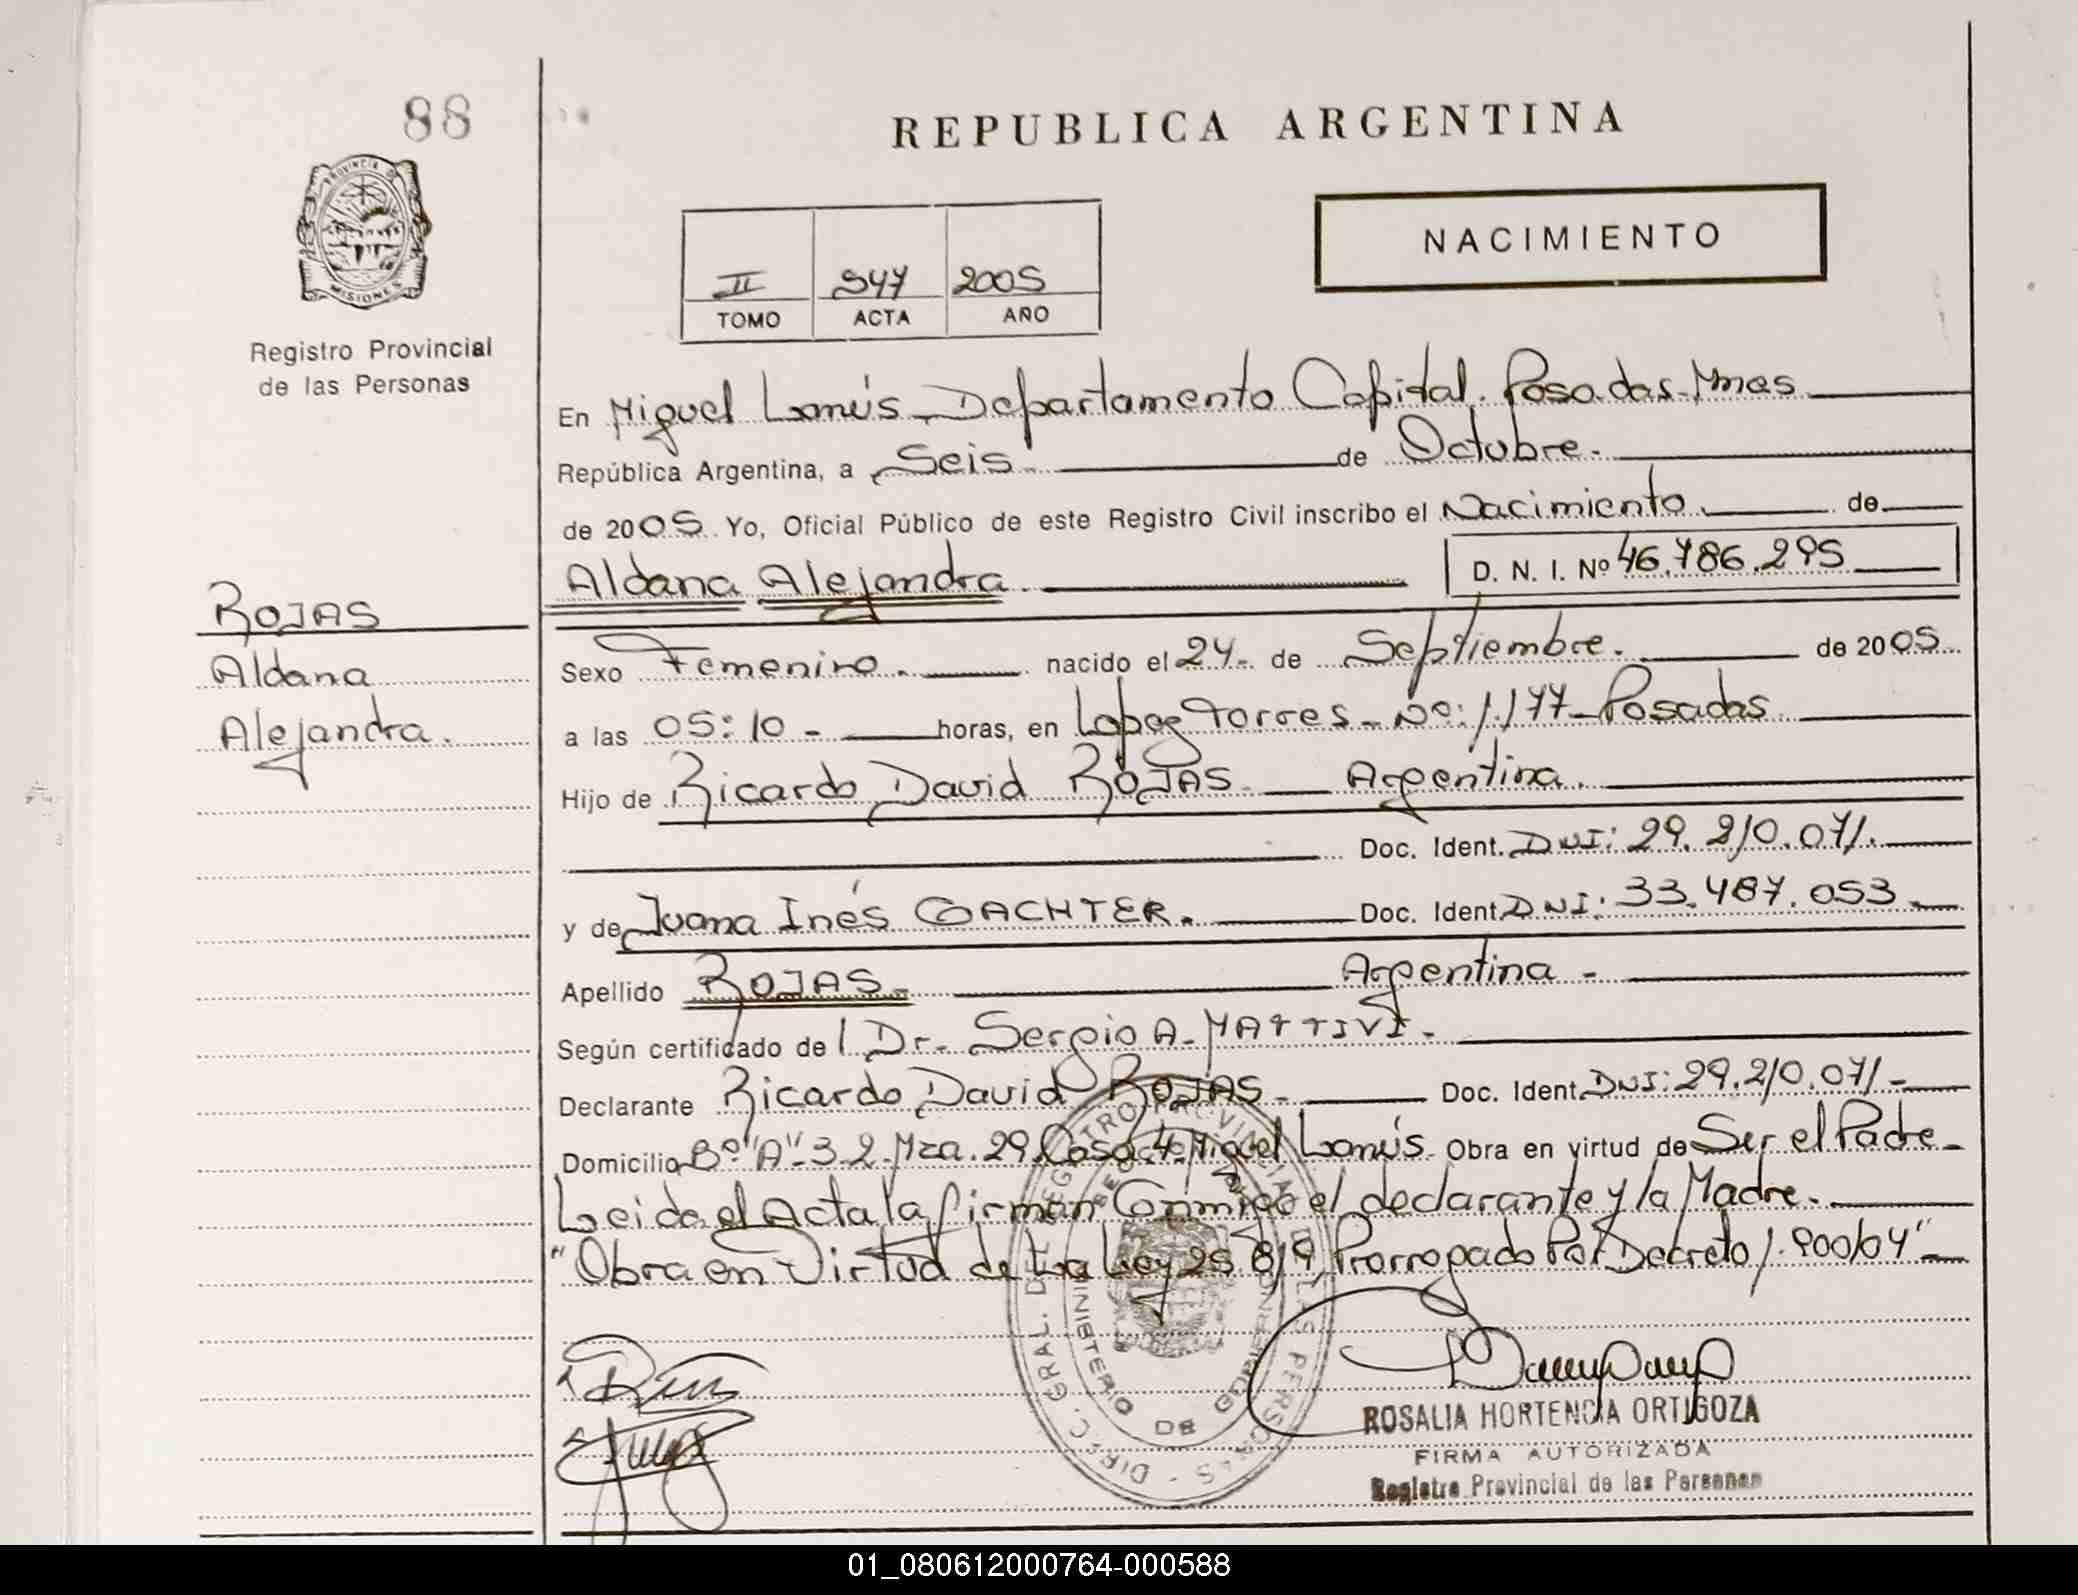 88
REPUBLICA ARGENTINA
PROVINCIA D
MISIONES
NACIMIENTO
II 547 2005
TOMO ACTA AÑO
Registro Provincial
de las Personas
En Miguel Lanús - Departamento Capital. Posadas - Mnes
República Argentina, a Seis de Octubre.
de 2005. Yo, Oficial Público de este Registro Civil inscribo el Nacimiento de
Aldana Alejandra D. N. I. Nº 46.786.295
ROJAS
Aldana
Alejandra.
Sexo Femenino. nacido el 24 - de Septiembre. de 2005
a las 05:10 - horas, en Lopez Torres - No: 1.177 - Posadas
Hijo de Ricardo David ROJAS - Argentina.
Doc. Ident. DNI: 29.210.071.
y de Juana Inés GACHTER. Doc. Ident. DNI: 33.487.053
Apellido ROJAS. Argentina -
Según certificado de Dr. Sergio A. MATTIVI -
Declarante Ricardo David ROJAS - Doc. Ident. DNI: 29.210.071 -
Domicilio Bº "A" - 3.2. Mza. 29 Casa 4 Miguel Lanús. Obra en virtud de Ser el Padre -
Leida el Acta la firman Conmigo el declarante y la Madre.
"Obra en Virtud de La Ley 25 819 Prorrogado Por Decreto 1.900/04"
DIREC. GRAL. DEL REGISTRO PROVINCIAL DE LAS PERSONAS
MINISTERIO DE GOBIERNO
ROSALIA HORTENCIA ORTIGOZA
FIRMA AUTORIZADA
Registro Provincial de las Personas
01_080612000764-000588